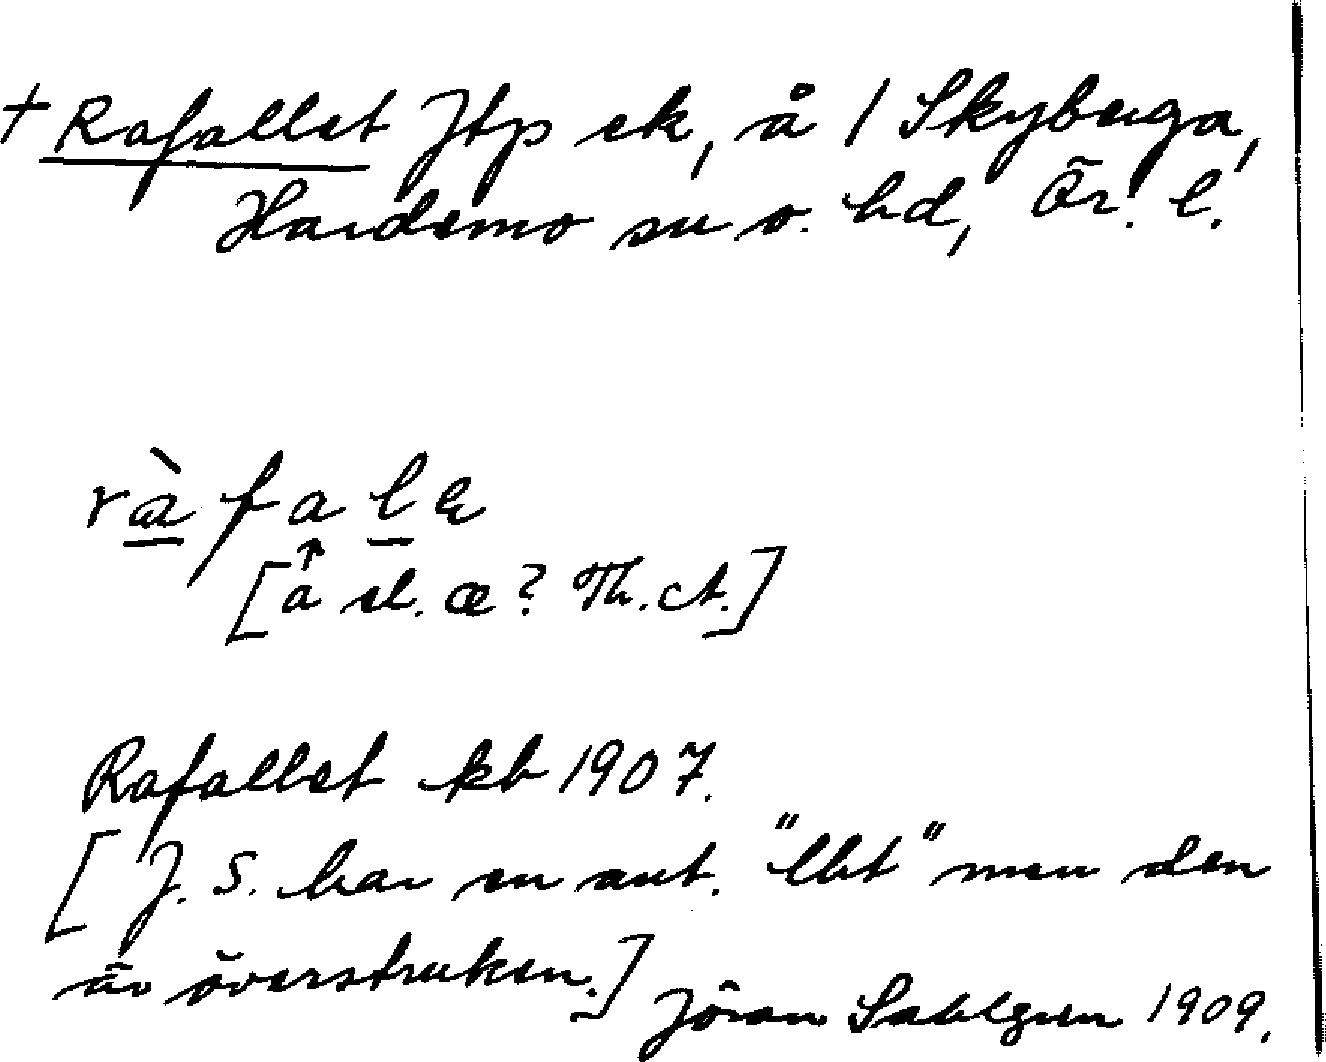 + Rafallet Jtp ek, å / Skybuga,
Hardemo sn o. hd, Ör. l.
ràfalɛ
[a el. æ? Th. A.]
Rafallet kb 1907.
[J. S. har en ant. "llet" men den
är överstruken.] Jöran Sahlgren 1909.